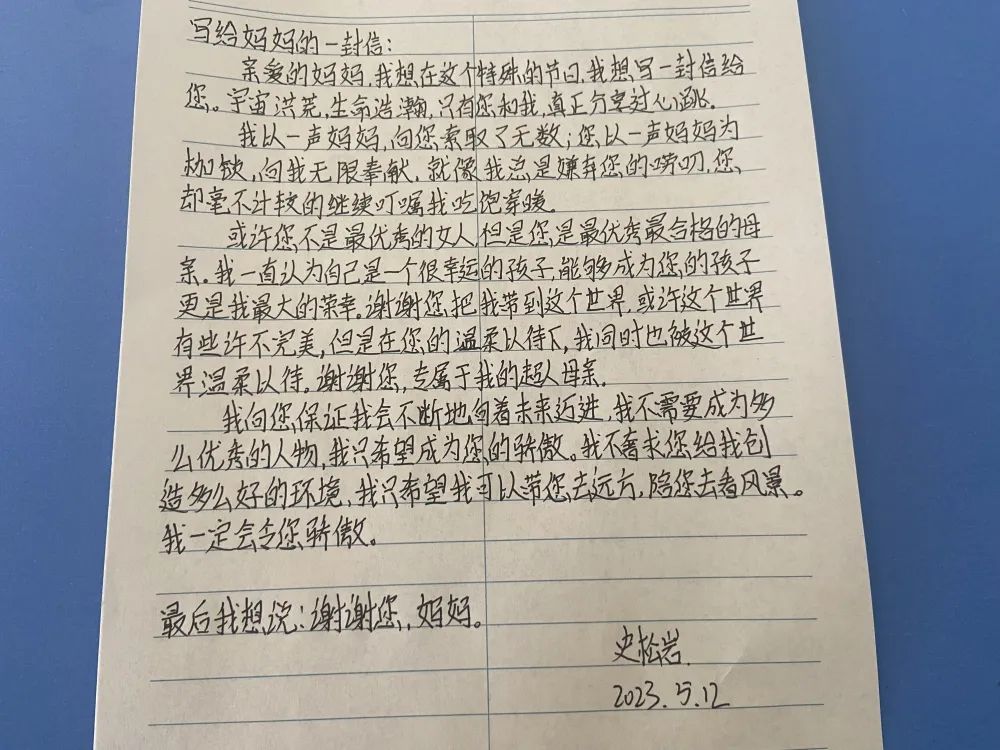 写给妈妈的一封信:
亲爱的妈妈,我想在这个特殊的节日,我想写一封信给
您。宇宙洪荒,生命浩瀚,只有您和我,真正分享过心跳.
我以一声妈妈,向您索取了无数;您以一声妈妈为
枷锁,向我无限奉献,就像我总是嫌弃您的唠叨,您,
却毫不计较的继续叮嘱我吃饱穿暖。
或许您不是最优秀的女人,但是您是最优秀最合格的母
亲。我一直认为自己是一个很幸运的孩子,能够成为您的孩子
更是我最大的荣幸。谢谢您把我带到这个世界,或许这个世界
有些许不完美,但是在您的温柔以待下,我同时也被这个世
界温柔以待。谢谢您,专属于我的超人母亲。
我向您保证我会不断地向着未来迈进,我不需要成为多
么优秀的人物,我只希望成为您的骄傲。我不奢求您给我创
造多么好的环境,我只希望我可以带您去远方,陪您去看风景。
我一定会令您骄傲。
最后我想说:谢谢您,妈妈。
史松岩.
2023.5.12